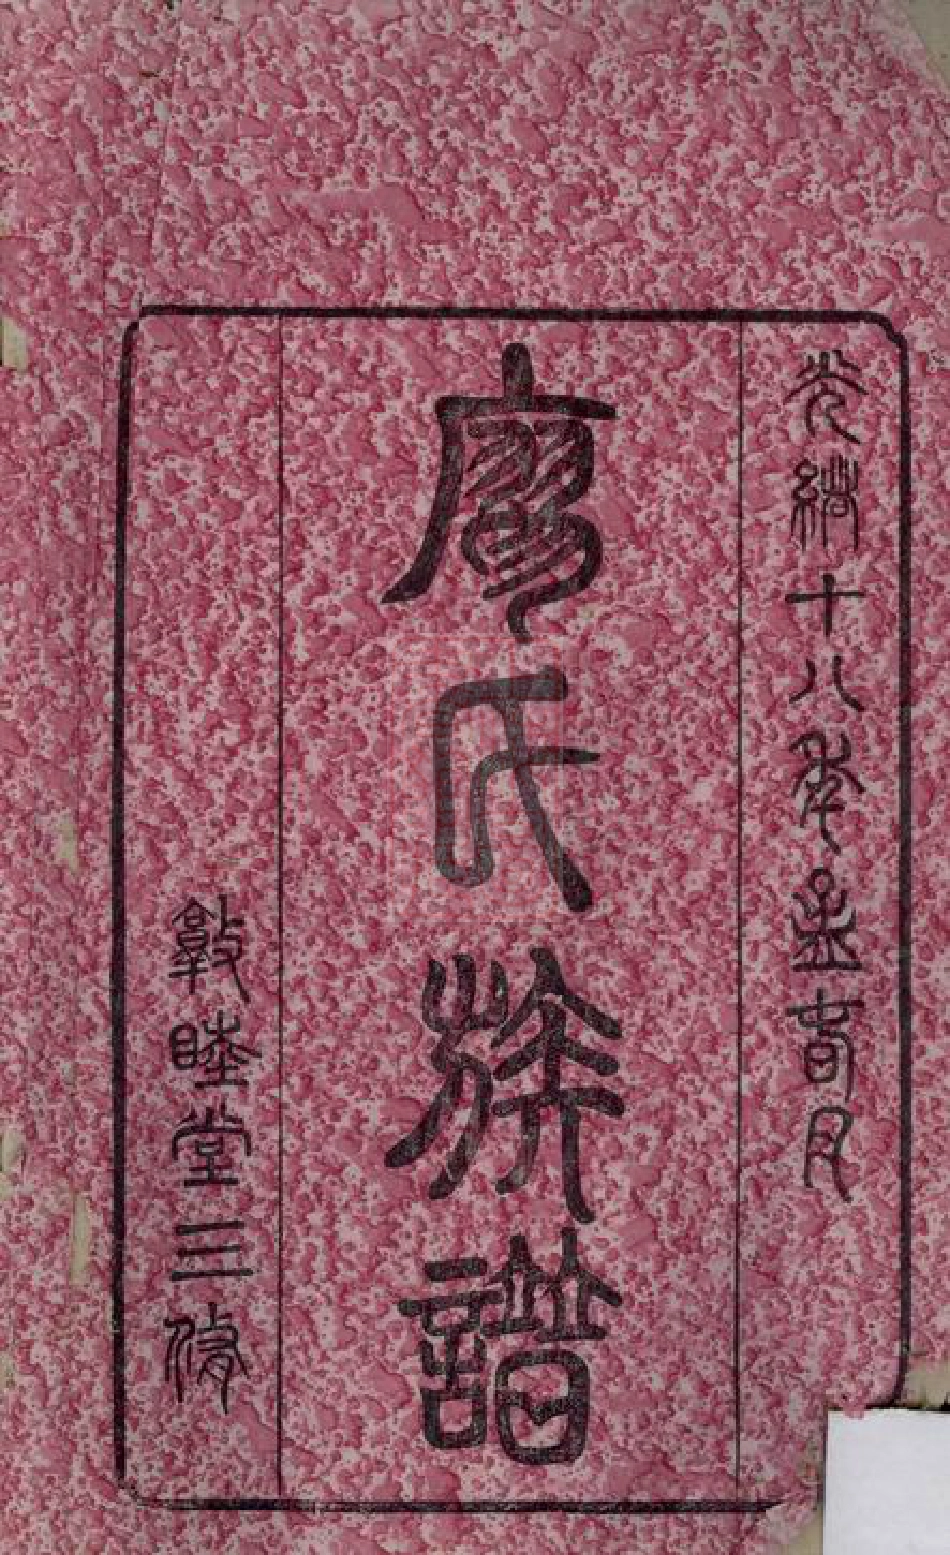 光緒十八年孟月
廖氏族譜
敦睦堂三修